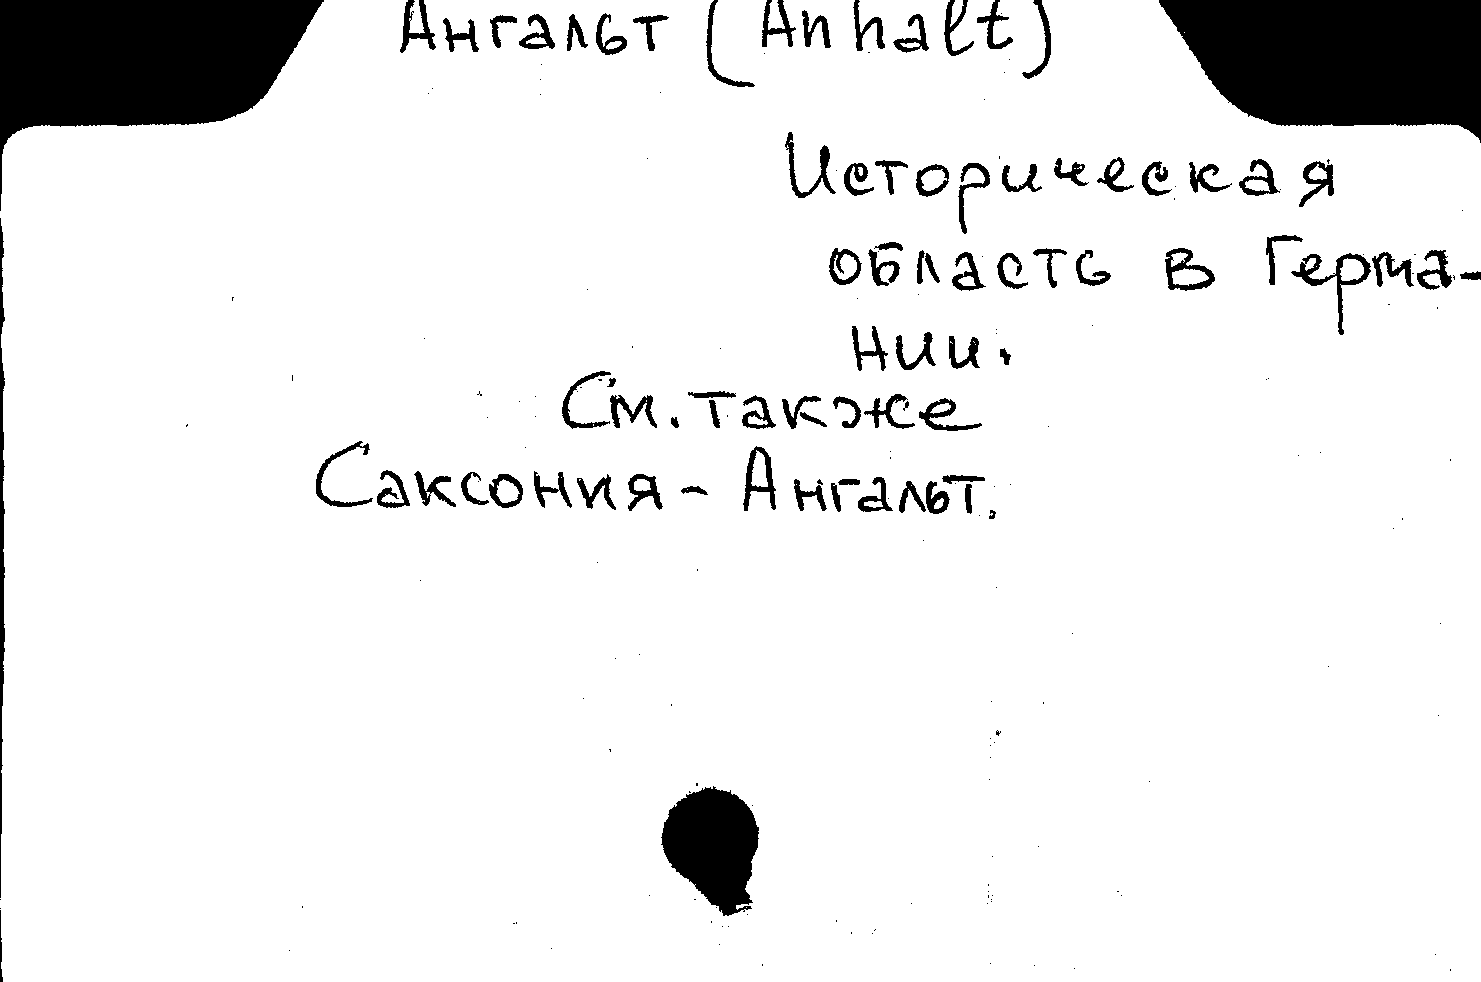 Ангальт (Anhalt)
Историческая
область в Герма-
нии.
См. также
Саксония - Ангальт.